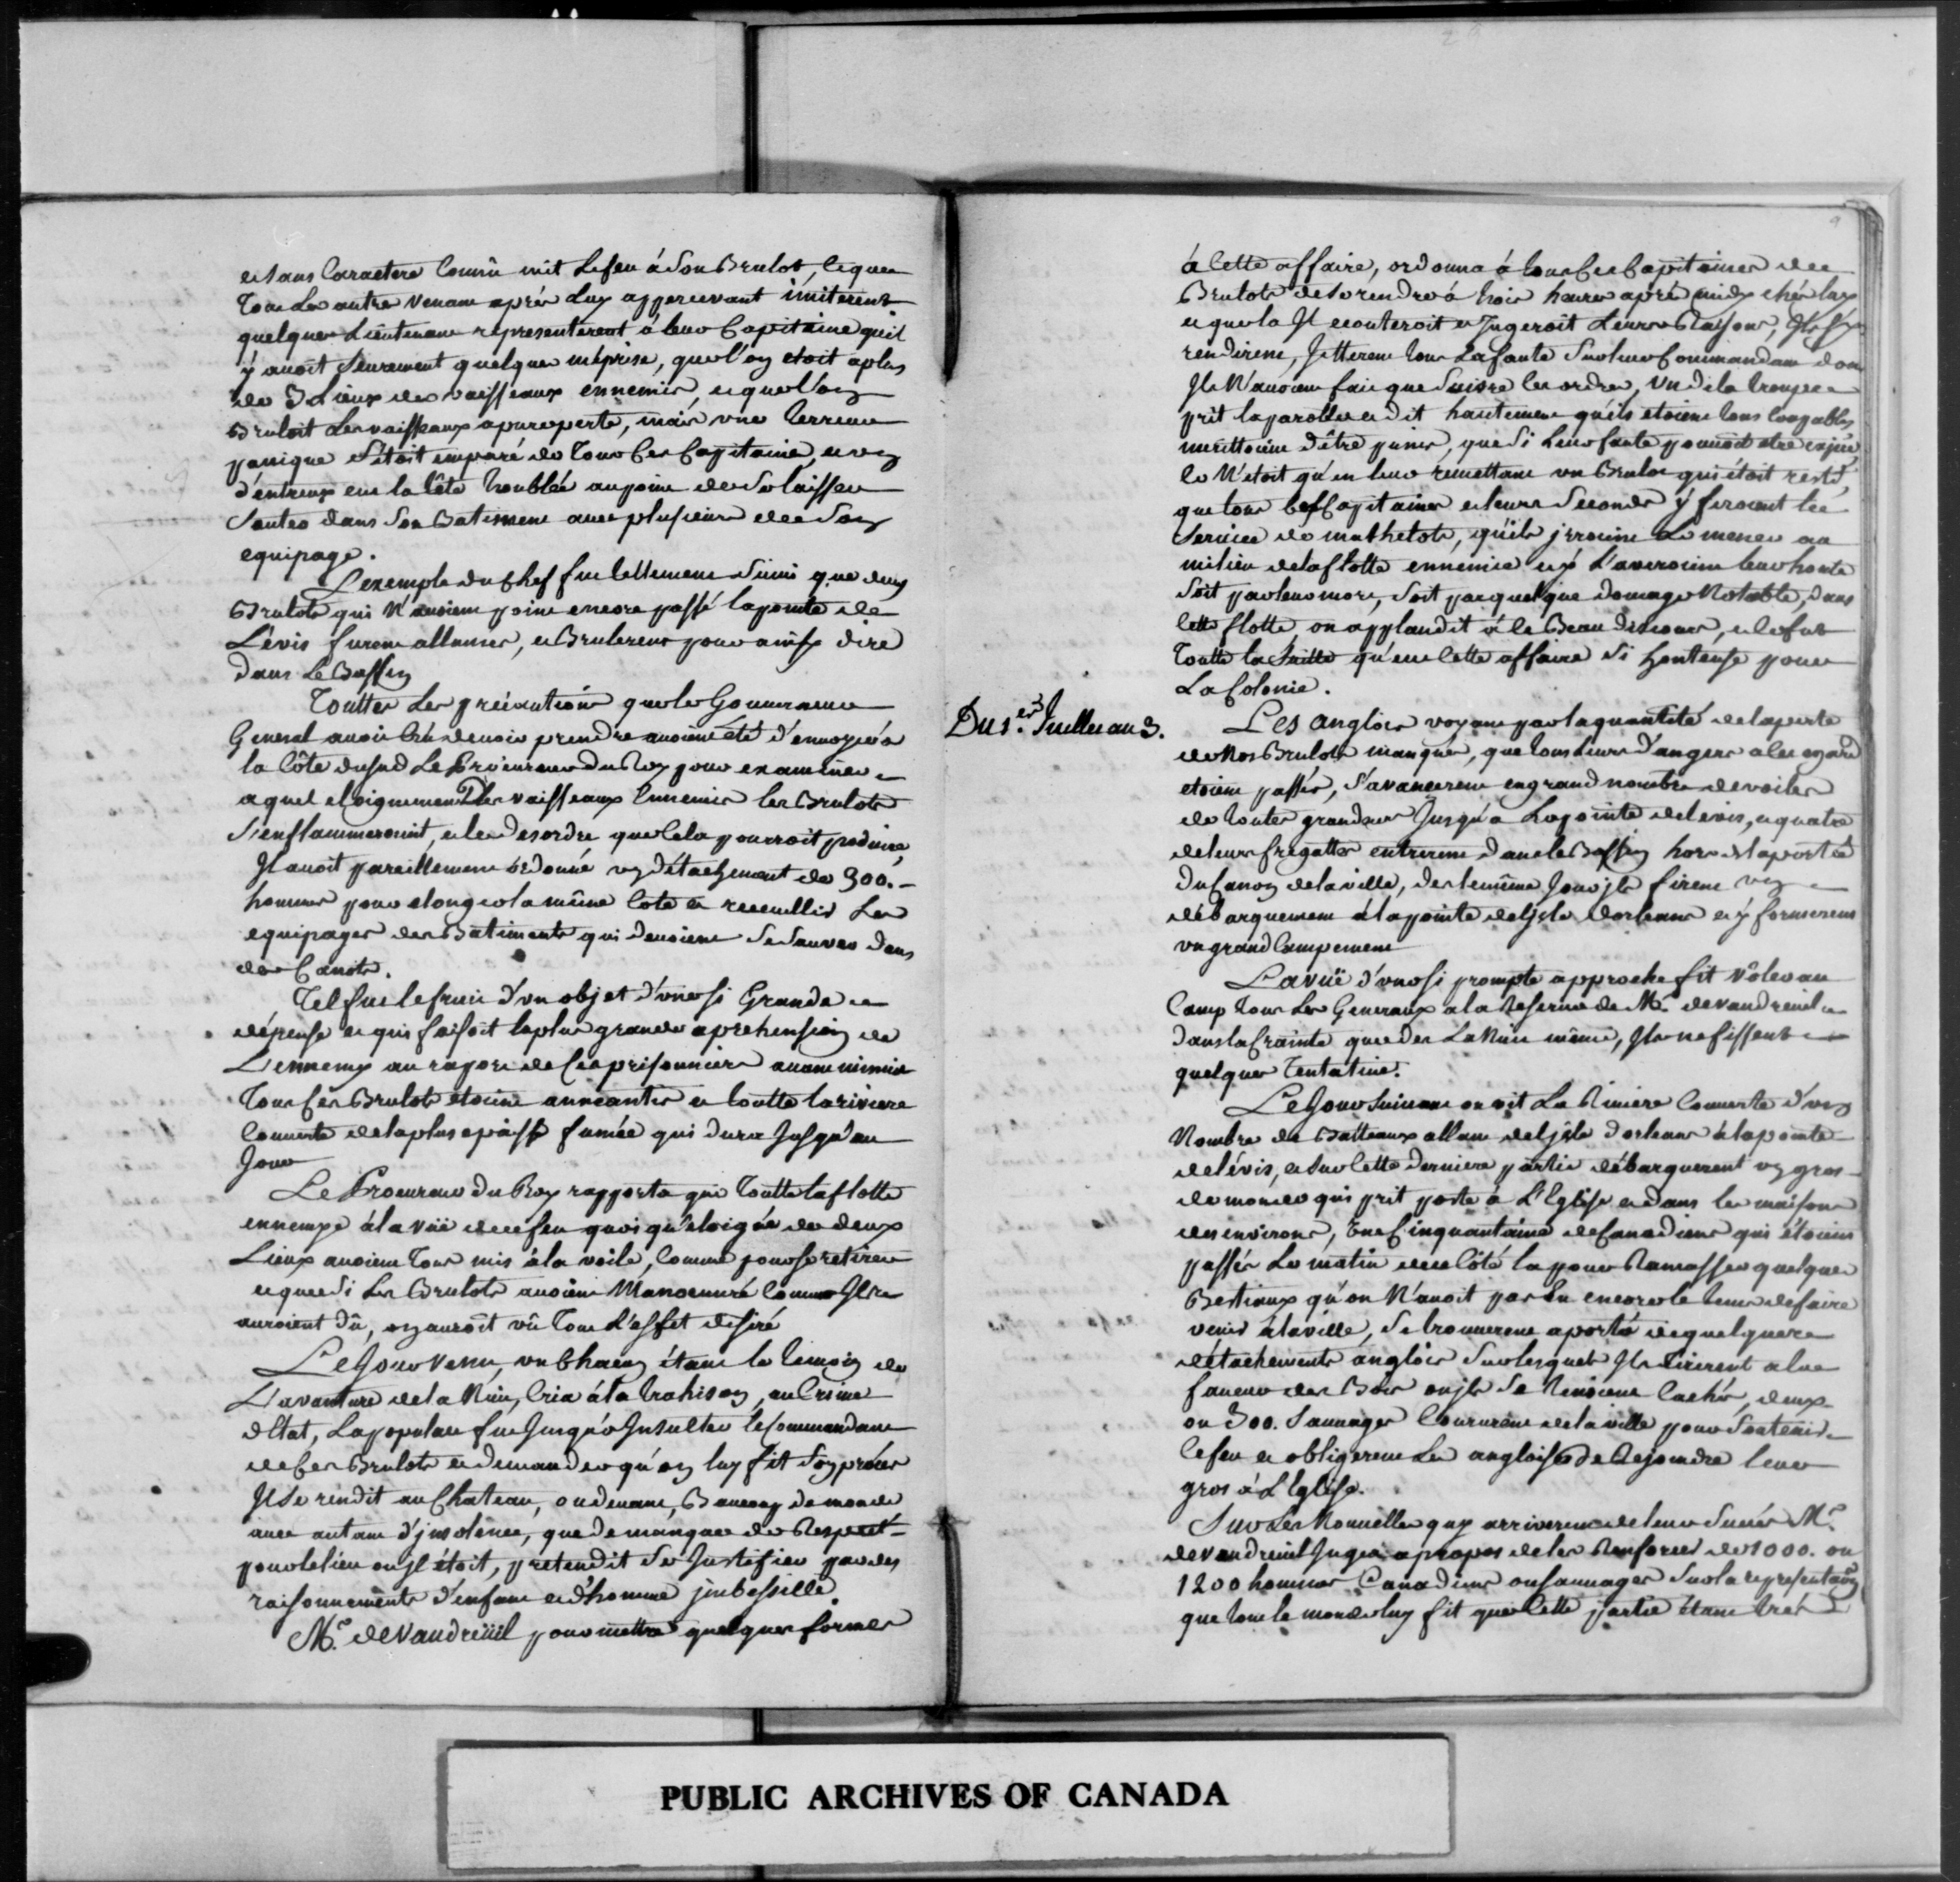 et sans Caractere Connû mit Le feu à Son Brulot, ce que
Tous Les autre Venant aprés Luy appercevant imiterent
quelques Lieutenans representerent à leur Capitaine qu'il
y avoit Seurement quelque méprise, que l'on etoit a plus
de 3 Lieux des vaisseaux ennemis, et que l'on
Bruloit Les vaisseaux a pure perte, mais une terreur
panique s'étoit emparé de Tous Ces Capitaines, un
d'entreux eut la tête troublée au point de se laisser
Sauter dans Son Batiment avec plusieurs de Son
equipage.
L'exemple du Chef fut tellement Suivi que deux
Brulots qui N'avoient point encore passé la pointe de
Lévis furent allumés, et Brulerent pour ainsy dire
dans Le Bassin
Touttes Les précautions que le Gouverneur
General avoit Crû devoir prendre avoient été d'envoyer à
la Côte du Sud Le Procureur du Roy pour examiner
a quel eloignement Des vaisseaux Ennemis les Brulots
S'enflammeroient, et le desordre que Cela pourroit produire,
Il avoit pareillement ordonné un détachement de 300.
hommes pour elonger la même Cote et receuillir Les
equipages des Batiments qui devoient Se Sauver dans
des Canots.
Tel fut le fruit d'un objet d'une si Grande
dépense et qui faisoit la plus grande apréhension de
L'ennemy au raport de Ces prisonniers avant minuit
Tous Ces Brulots etoient anneantis et Toutte la riviere
Couverte de la plus epaisse fumée qui dura Jusqu'au
Jour
Le Procureur du Roy rapporta que Toutte la flotte
ennemye à la vüe de ce feu quoi qu'eloigée de deux
Lieux avoient Tous mis à la voile, Comme pour se retirer
et que si Les Brulots avoient Manoeuvré Comme Ils
auroient dû, on auroit vû Tout L'effet desiré
Le Jour Venu, un Chacun étant le temoin de
L'avanture de la Nuit, Cria à la trahison, au Crime
d'Etat, La populace fut Jusqu'à Insulter le Commandant
de Ces Brulots et demander qu'on luy fit Son procés
Il Se rendit au Chateau, ou devant Beaucoup de monde
avec autant d'jnsolence, que de manque de Respect
pour le lieu ou Il étoit, pretendit Se Justifier par des
raisonnements d'enfant et d'homme jmbessille.
Mr. de Vaudreüil pour mettre quelques formes
à Cette affaire, ordonna à tous Ces Capitaines des
Brulots de se rendre à trois heures aprés midy chés luy
et que là Il ecouteroit et Jugeroit Leurs Raisons, Ils S'y
rendirent, Jetterent tous La faute Sur leur Commandant dont
Ils N'avoient fait que Suivre les ordres, Un de la troupe
prit la parolle et dit hautement qu'ils etoient tous Coupables
merittoient d'être punis, que Si Leur faute pouvoit etre expiée
Ce N'etoit qu'en leur remettant un Brulot qui étoit resté,
que tous Ces Capitaines et leurs Seconds y feroient le
Service de mathelots, qu'ils jrroient Le mener au
milieu de la flotte ennemie et y Laveroient leur honte
Soit par leur mort, Soit par quelque domage Notable, dans
Cette flotte, on applaudit à Ce Beau discours, et ce fut
Toutte la Suitte qu'eut Cette affaire Si honteuse pour
La Colonie.
Du 1.er Juillet au 3.
Les anglois voyant par la quantité de la perte
de Nos Brulots manqués, que tous Leurs dangers a leur egard
etoient passés, S'avancerent en grand nombre de voiles
de toutes grandeur Jusqu'à La pointe de Levis, et quatre
de leurs fregattes entrerent dans le Bassin hors de la portée
du Canon de la ville, dés le même Jour jls firent un
débarquement à la pointe de l'jsle d'orleans et y formerent
un grand Campement
La vüe d'une si prompte approche fit voler au
Camp tous Les Generaux a la Reserve de Mr. de Vaudreuil
dans la Crainte que dés La Nuit même, Ils ne fissent
quelques Tentatives.
Le Jour Suivant on vit La Riviere Couverte d'un
Nombre de Batteaux allant de l'jsle d'orleans à la pointe
de lévis, et Sur Cette derniere partie débarquerent un gros
de monde qui prit poste à L'Eglise et dans les maisons
des environs, Une Cinquantaine de Canadiens qui étoient
passés Le matin de ce Côté la pour Ramasser quelques
Bestiaux qu'on N'avoit pas Eu encore le tems de faire
venir à la ville, Se trouverent a portée de quelques
détachements anglois Sur lesquels Ils tirerent a la
faveur des Bois ou jls Se tenoient Cachés, deux
ou 300. Sauvages Coururent de la ville pour Soutenir
Ce feu et obligerent Les anglois de Rejoindre leur
gros à L'Eglise.
Sur Les Nouvelles qui arriverent de leur Succés Mr.
de Vaudreuil Jugea a propos de les Renforcer de 1000. ou
1200 hommes Canadiens ou Sauvages Sur la représentation
que tout le monde luy fit que Cette partie étant trés
PUBLIC ARCHIVES OF CANADA